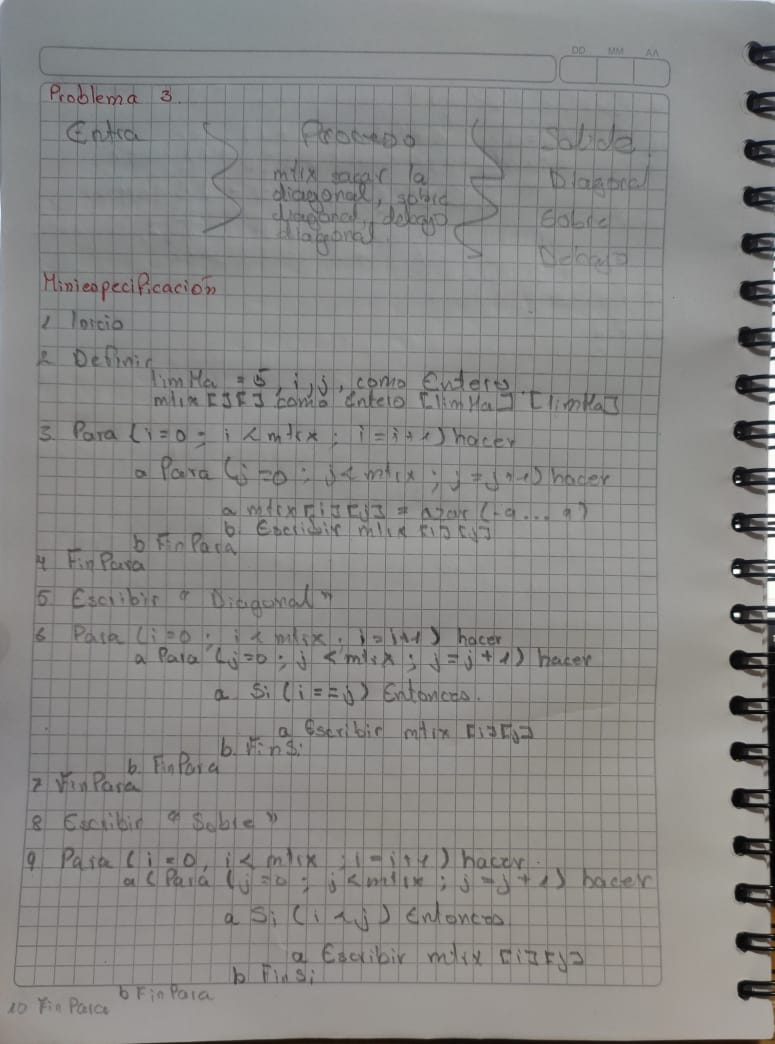 DD MM AA
Problema 3.
Entra Proceso Salida
mtix sacar la Diagonal
diagonal, sobre
diagonal, debayo Sobre
diagonal Debayo
Miniespecificación
1 Inicio
2 Definir
limMa = 5, i, j, como Entero
mtix [][] como entero [limMa] [limMa]
3. Para (i=0; i < mtix; i=i+1) hacer
a Para (j=0; j < mtix; j=j+1) hacer
a mtix[i][j] = azar (-9...9)
b. Escribir mtix [i][j]
b FinPara
4 FinPara
5 Escribir "Diagonal"
6 Para (i=0; i < mtix; i=i+1) hacer
a Para (j=0; j < mtix; j=j+1) hacer
a Si (i==j) Entonces.
a Escribir mtix [i][j]
b. Finsi
b. FinPara
7 FinPara
8 Escribir "Sobre"
9 Para (i=0, i < mtix; i=i+1) hacer.
a (Para (j=0; j < mtix; j=j+1) hacer
a Si (i < j) Entonces
a Escribir mtix [i][j]
b Finsi
b FinPara
10 FinPara